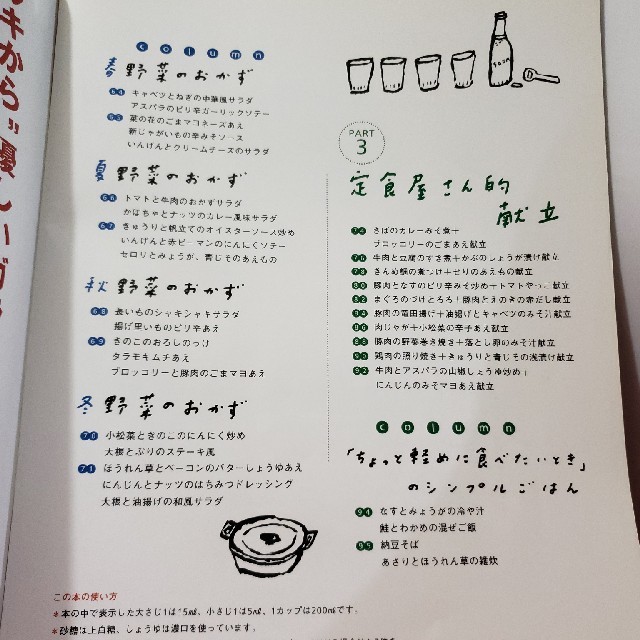 column
春野菜のおかず
64 キャベツとねぎの中華風サラダ
アスパラのピリ辛ガーリックソテー
65 菜の花のごまマヨネーズあえ
新じゃがいもの辛みそソース
いんげんとクリームチーズのサラダ
夏野菜のおかず
66 トマトと牛肉のおかずサラダ
かぼちゃとナッツのカレー風味サラダ
67 きゅうりと帆立てのオイスターソース炒め
いんげんと赤ピーマンのにんにくソテー
セロリとみょうが、青じそのあえもの
秋野菜のおかず
68 長いものシャキシャキサラダ
揚げ里いものピリ辛あえ
69 きのこのおろしのっけ
タラモキムチあえ
ブロッコリーと豚肉のごまマヨあえ
冬野菜のおかず
70 小松菜ときのこのにんにく炒め
大根とぶりのステーキ風
71 ほうれん草とベーコンのバターしょうゆあえ
にんじんとナッツのはちみつドレッシング
大根と油揚げの和風サラダ
PART
3
定食屋さん的
献立
74 さばのカレーみそ煮+
ブロッコリーのごまあえ献立
76 牛肉と豆腐のすき煮+かぶのしょうが漬け献立
78 きんめ鯛の煮つけ+せりのあえもの献立
80 豚肉となすのピリ辛みそ炒め+トマトやっこ献立
82 まぐろのづけとろろ+豚肉とえのきの赤だし献立
84 豚肉の竜田揚げ+油揚げとキャベツのみそ汁献立
86 肉じゃが+小松菜の辛子あえ献立
88 豚肉の野菜巻き焼き+落とし卵のみそ汁献立
鶏肉の照り焼き+きゅうりと青じその浅漬け献立
92 牛肉とアスパラの山椒しょうゆ炒め+
にんじんのみそマヨあえ献立
column
「ちょっと軽めに食べたいとき」
のシンプルごはん
94 なすとみょうがの冷や汁
鮭とわかめの混ぜご飯
95 納豆そば
あさりとほうれん草の雑炊
この本の使い方
*本の中で表示した大さじ1は15㎖、小さじ1は5㎖、1カップは200㎖です。
*砂糖は上白糖、しょうゆは濃口を使っています。